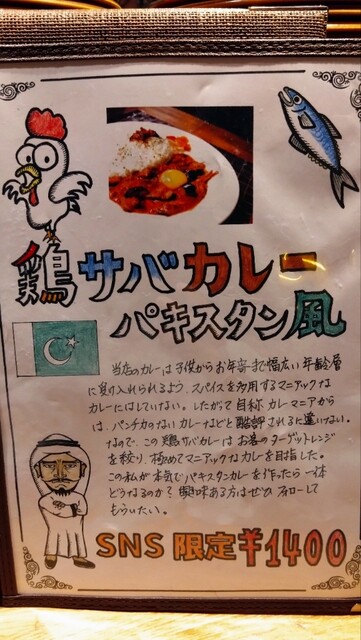 鶏サバカレー
パキスタン風
当店のカレーは子供からお年寄まで幅広い年齢層
に受け入れられるよう、スパイスを多用するマニアックな
カレーにはしていない。したがって自称カレーマニアから
は、パンチのないカレーなどと酷評されるに違いない。
なので、この鶏サバカレーはお客のターゲットレンジ
を絞り、極めてマニアックなカレーを目指した。
この私が本気でパキスタンカレーを作ったら一体
どうなるのか？興味ある方はぜひフォローして
もらいたい。
SNS限定¥1400